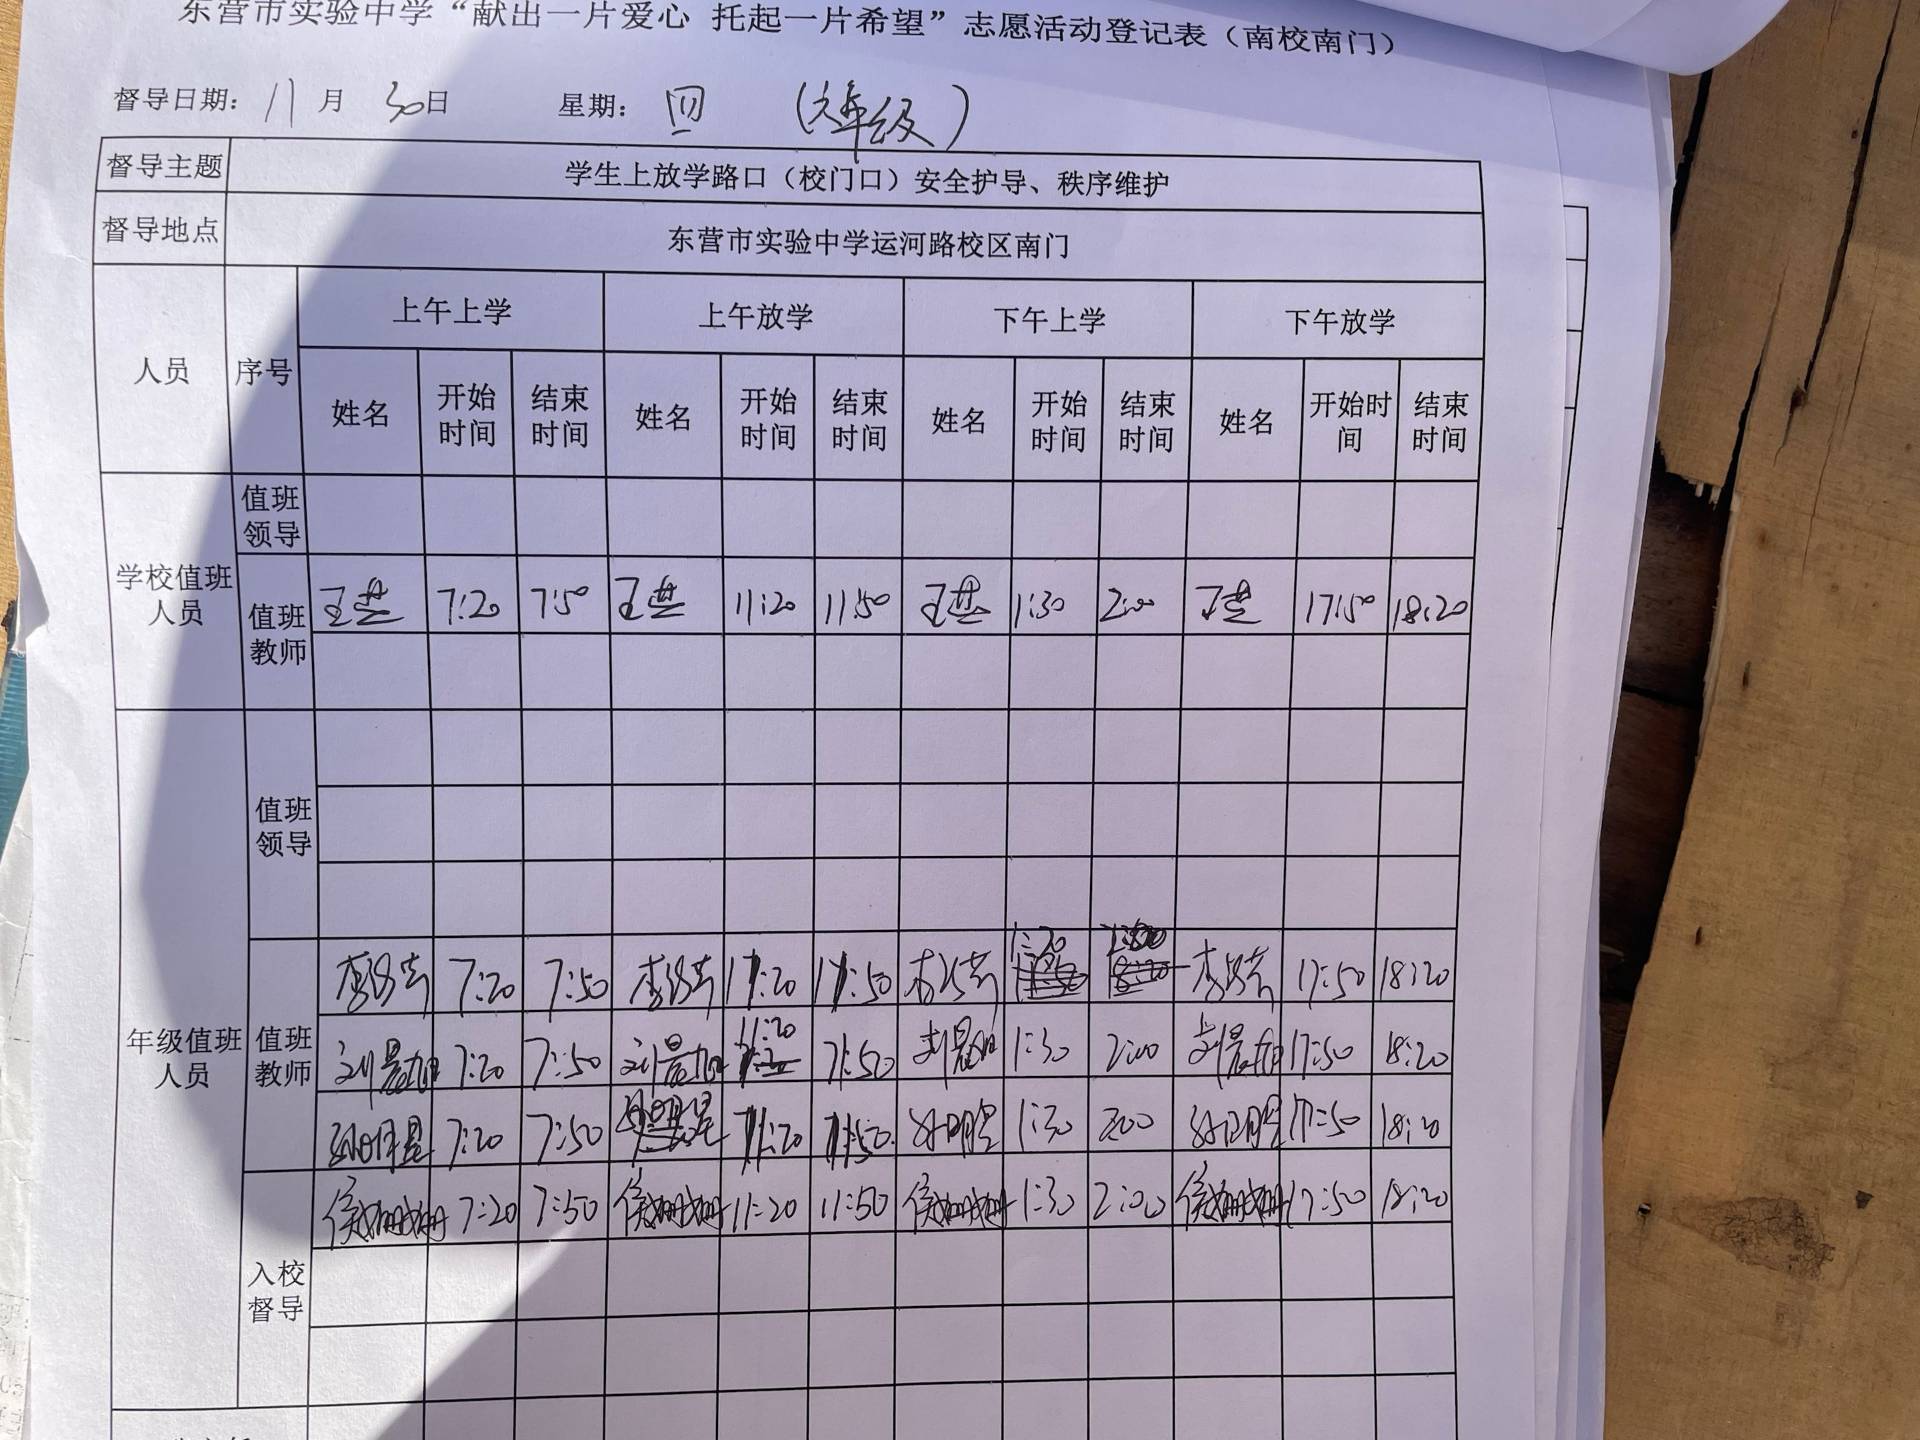 东营市实验中学“献出一片爱心 托起一片希望”志愿活动登记表（南校南门）
督导日期： 11 月 30 日 星期： 四 （六年级）
督导主题 学生上放学路口（校门口）安全护导、秩序维护
督导地点 东营市实验中学运河路校区南门
人员 序号 上午上学 上午放学 下午上学 下午放学
姓名 开始时间 结束时间 姓名 开始时间 结束时间 姓名 开始时间 结束时间 姓名 开始时间 结束时间
学校值班人员 值班领导
值班教师 7:20 7:50 11:20 11:50 1:30 2:00 17:50 18:20
年级值班人员 值班领导
值班教师 7:20 7:50 11:20 11:50 17:50 18:20
刘晨旭 7:20 7:50 刘晨旭 11:20 11:50 刘晨旭 1:30 2:00 刘晨旭 17:50 18:20
孙明星 7:20 7:50 11:20 11:50 孙明星 1:30 2:00 孙明星 17:50 18:20
入校督导 侯姗姗 7:20 7:50 侯姗姗 11:20 11:50 侯姗姗 1:30 2:00 侯姗姗 17:50 18:20